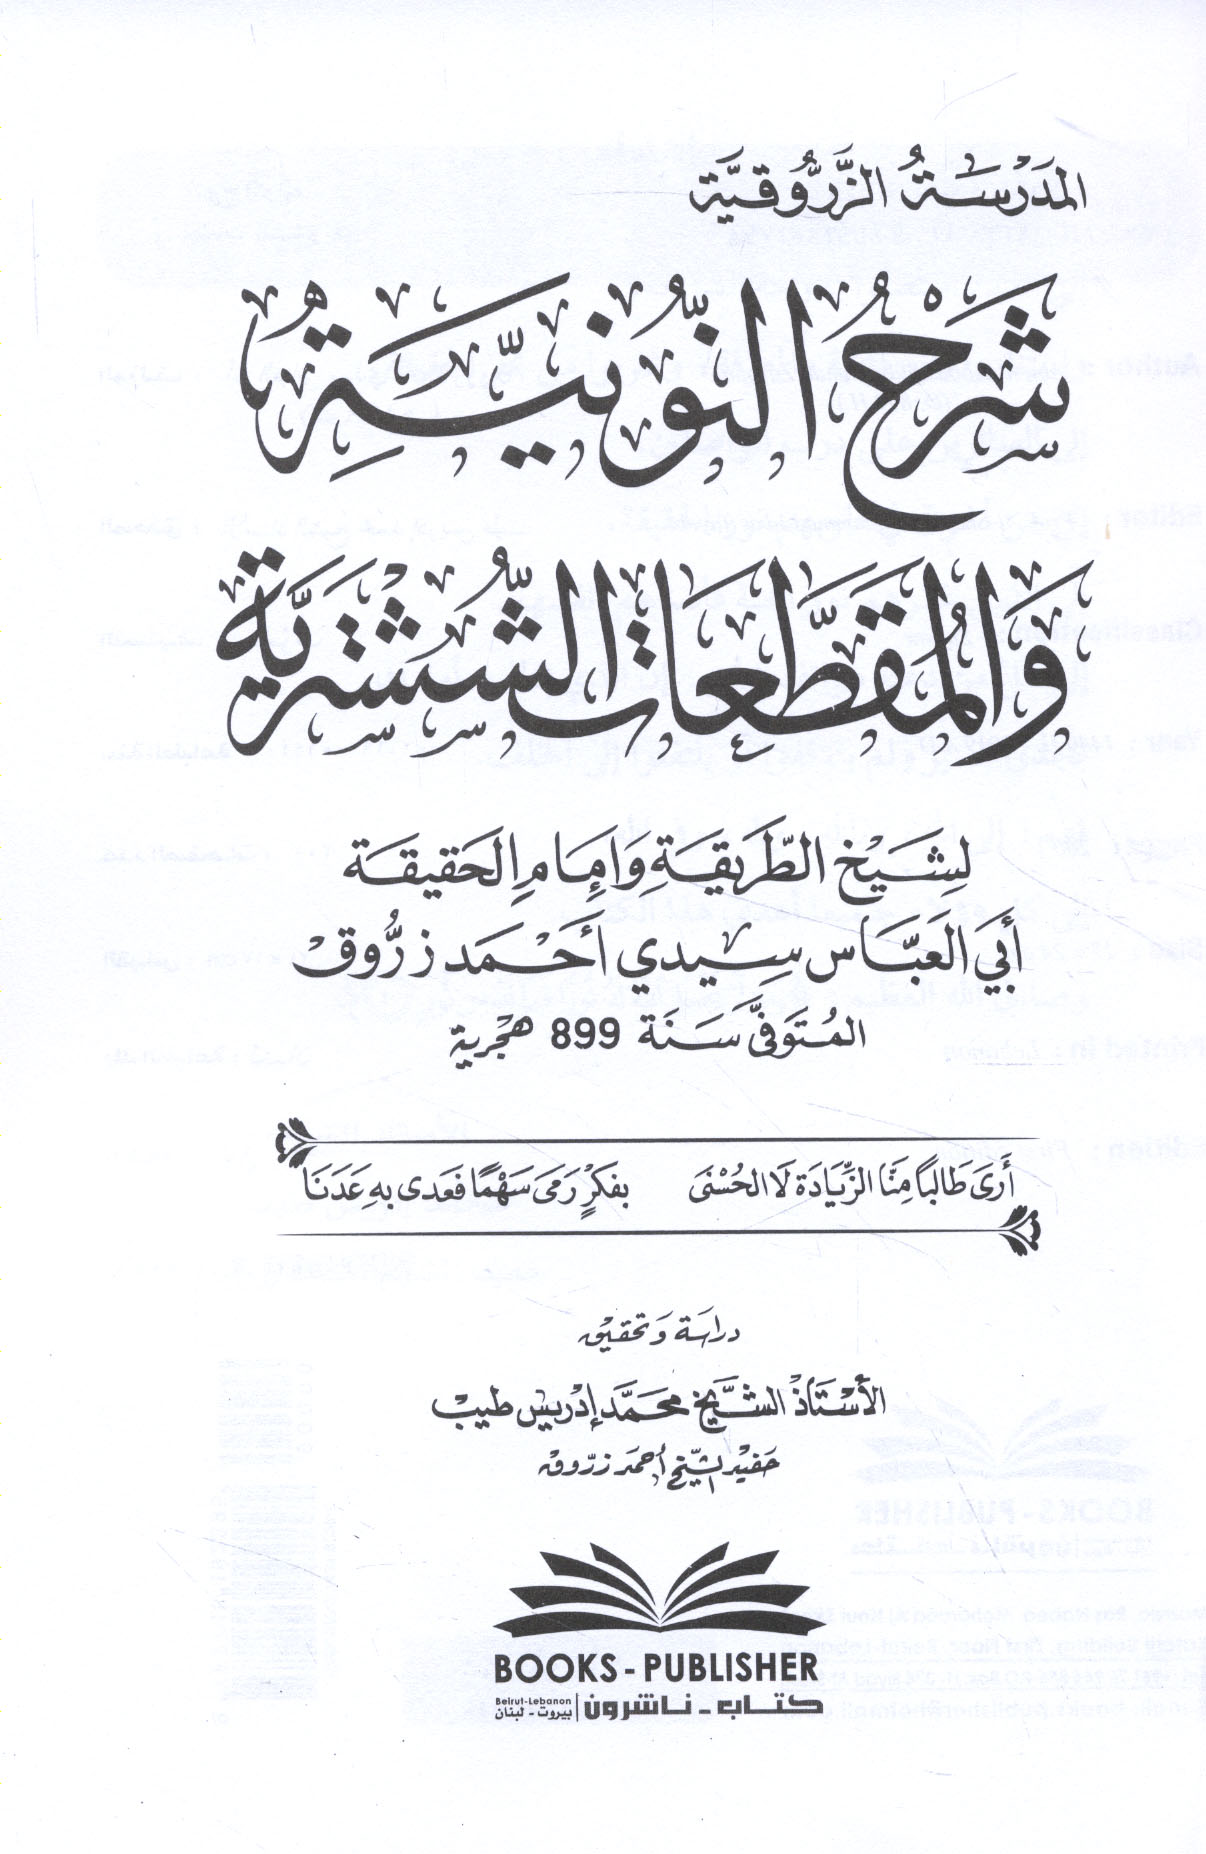 المَدْرَسَةُ الزَّرُّوقِيَّة
شَرْحُ النُّونِيَّةِ
وَالمُقَطَّعَاتِ الشُّشْتَرِيَّة
لِشَيْخِ الطَّرِيقَةِ وَإِمَامِ الحَقِيقَة
أَبِي العَبَّاس سِيدي أَحْمَد زرُّوقْ
المُتَوَفَّى سَنَة 899 هجرية
أَرَى طَالِبًا مِنَّا الزِّيَادَةَ لَا الحُسْنَى بِفِكْرٍ رَمَى سَهْمًا فَعَدى بِهِ عَدَنَا
دراسة وتحقيق
الأُسْتَاذ الشَّيْخ محمَّد إدريس طيب
حفيد الشيخ أحمد زروق
BOOKS - PUBLISHER
كتاب - ناشرون
Beirut-Lebanon
بيروت - لبنان